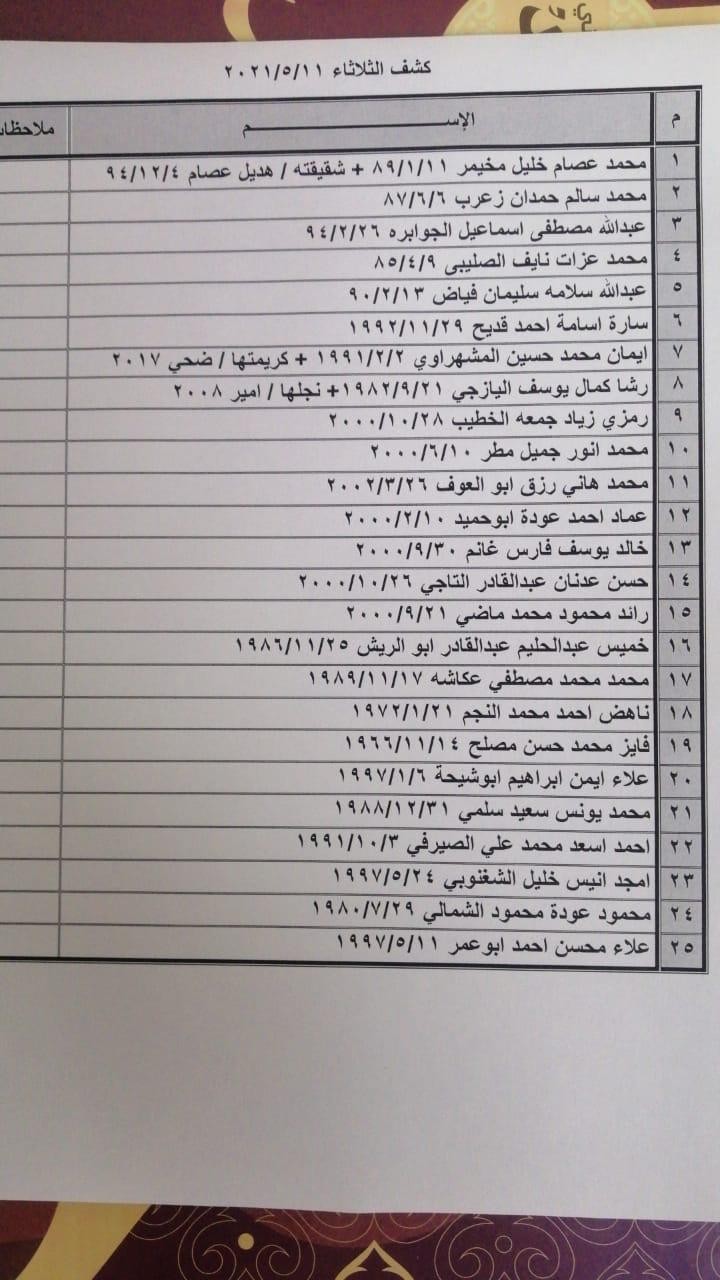 ني
كشف الثلاثاء ٢٠٢١/٥/١١
م الإســـــــــم ملاحظات
١ محمد عصام خليل مخيمر ٨٩/١/١١ + شقيقته / هديل عصام ٩٤/١٢/٤
٢ محمد سالم حمدان زعرب ٨٧/٦/٦
٣ عبدالله مصطفى اسماعيل الجوابره ٩٤/٢/٢٦
٤ محمد عزات نايف الصليبى ٨٥/٤/٩
٥ عبدالله سلامه سليمان فياض ٩٠/٢/١٣
٦ سارة اسامة احمد قديح ١٩٩٢/١١/٢٩
٧ ايمان محمد حسين المشهراوي ١٩٩١/٢/٢ + كريمتها / ضحي ٢٠١٧
٨ رشا كمال يوسف اليازجي ١٩٨٢/٩/٢١+ نجلها / امير ٢٠٠٨
٩ رمزي زياد جمعه الخطيب ٢٠٠٠/١٠/٢٨
١٠ محمد انور جميل مطر ٢٠٠٠/٦/١٠
١١ محمد هاني رزق ابو العوف ٢٠٠٢/٣/٢٦
١٢ عماد احمد عودة ابوحميد ٢٠٠٠/٢/١٠
١٣ خالد يوسف فارس غانم ٢٠٠٠/٩/٣٠
١٤ حسن عدنان عبدالقادر التاجي ٢٠٠٠/١٠/٢٦
١٥ رائد محمود محمد ماضي ٢٠٠٠/٩/٢١
١٦ خميس عبدالحليم عبدالقادر ابو الريش ١٩٨٦/١١/٢٥
١٧ محمد محمد مصطفي عكاشه ١٩٨٩/١١/١٧
١٨ ناهض احمد محمد النجم ١٩٧٢/١/٢١
١٩ فايز محمد حسن مصلح ١٩٦٦/١١/١٤
٢٠ علاء ايمن ابراهيم ابوشيحة ١٩٩٧/١/٦
٢١ محمد يونس سعيد سلمي ١٩٨٨/١٢/٣١
٢٢ احمد اسعد محمد علي الصيرفي ١٩٩١/١٠/٣
٢٣ امجد انيس خليل الشغنوبي ١٩٩٧/٥/٢٤
٢٤ محمود عودة محمود الشمالي ١٩٨٠/٧/٢٩
٢٥ علاء محسن احمد ابوعمر ١٩٩٧/٥/١١